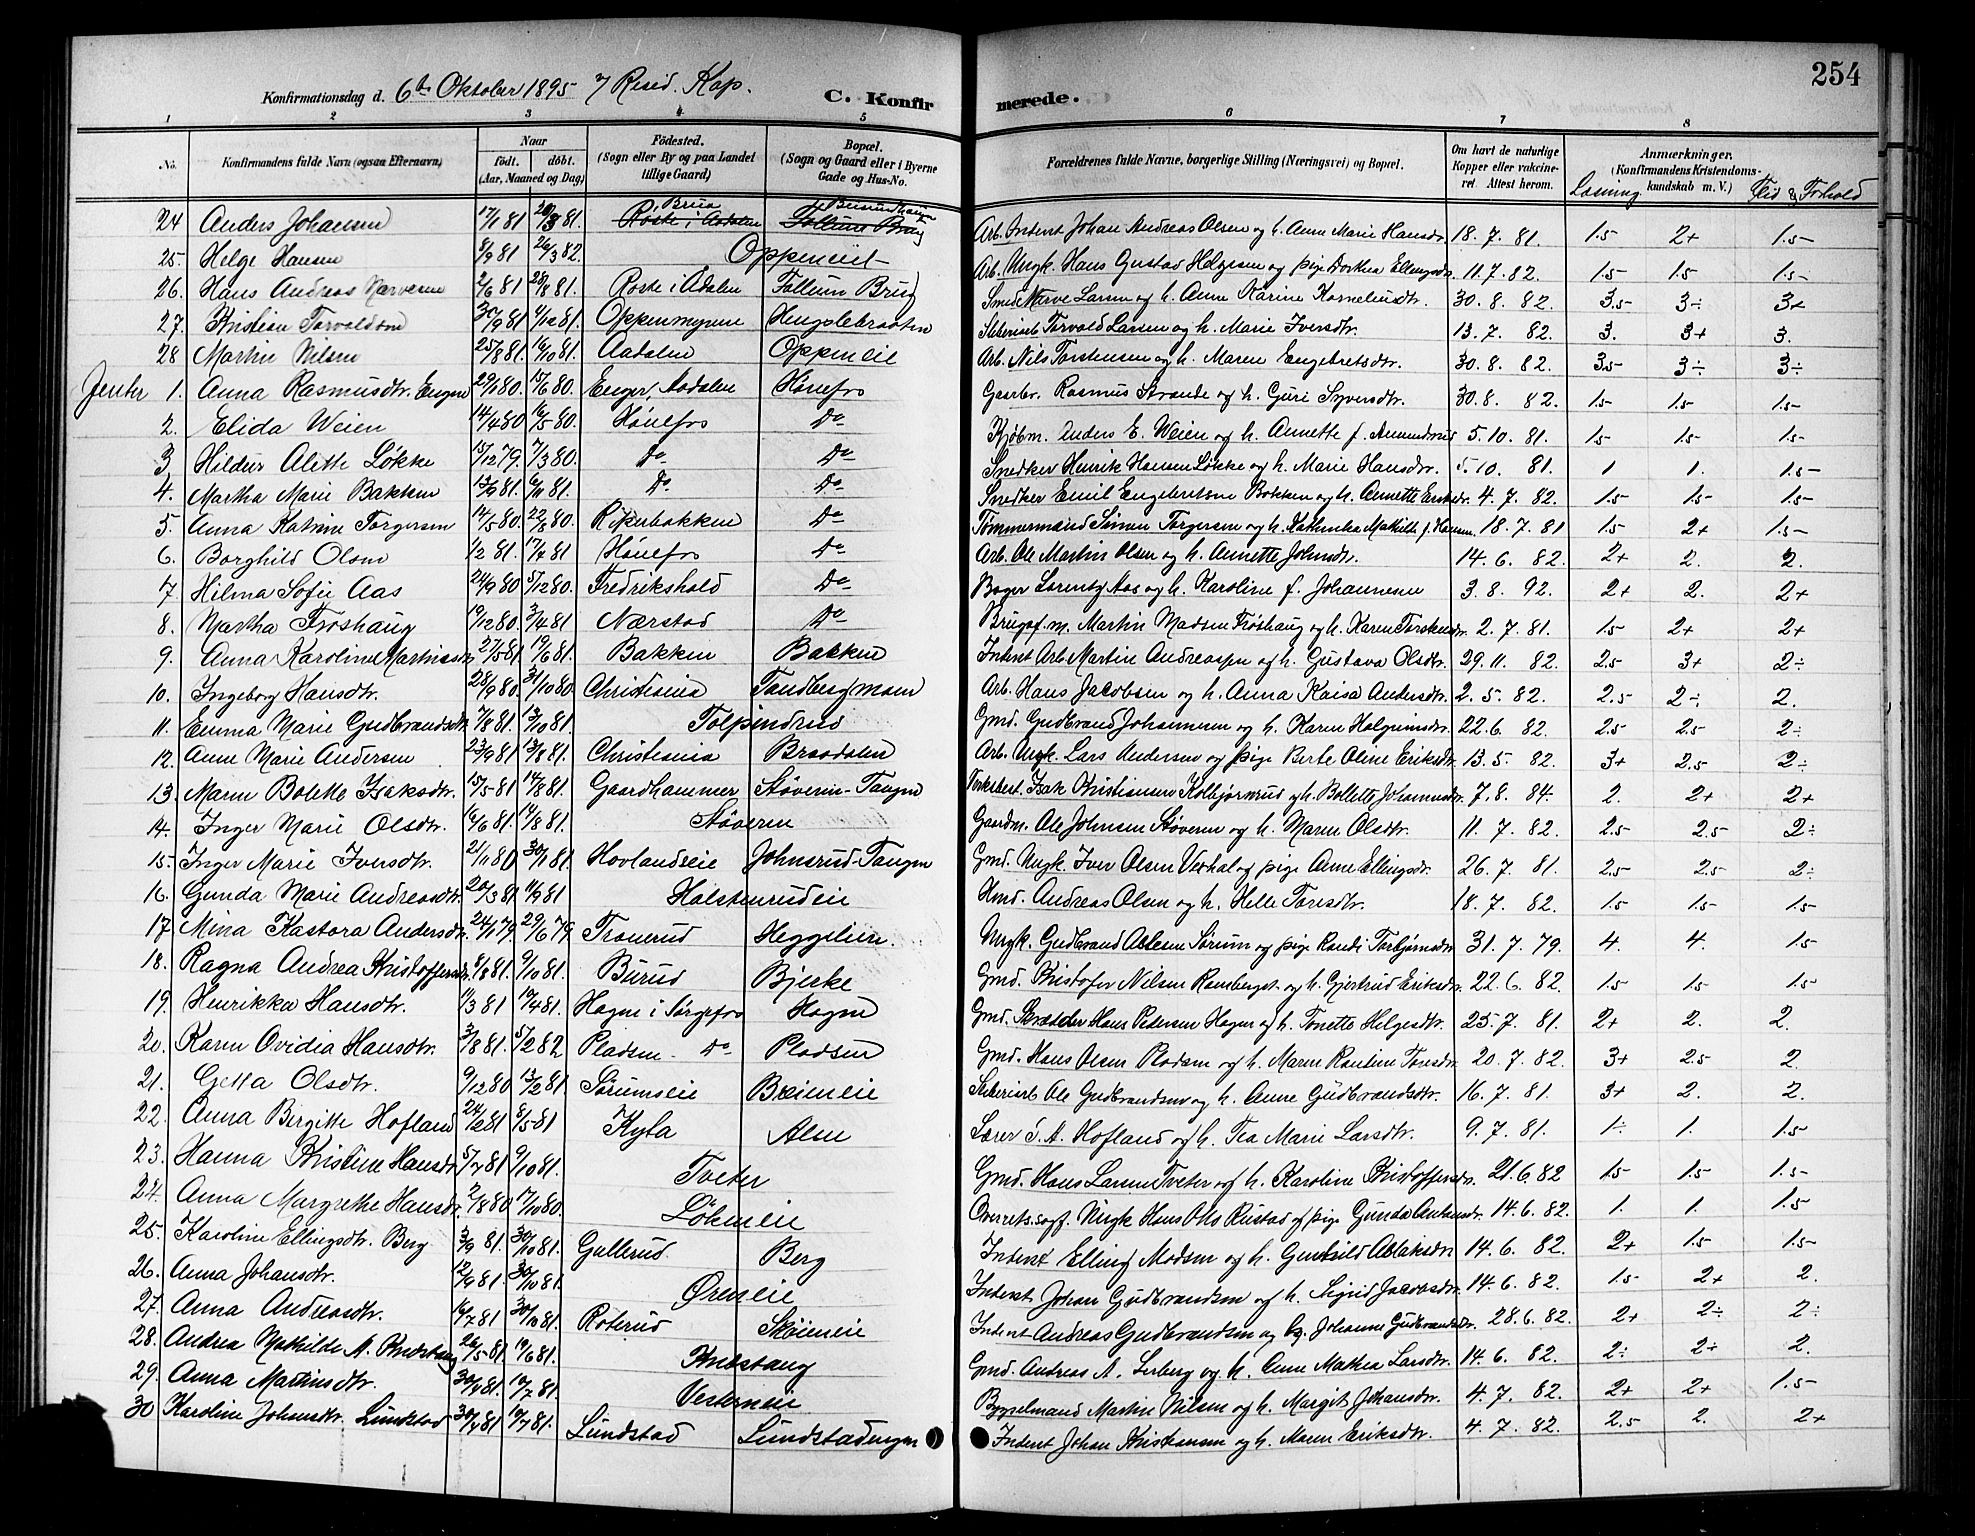 254
Konfirmationsdag d. 6te Oktober 1895 Resid. Kap. C. Konfirmerede.
1 2 3 4 5 6 7 8
No. Konfirmandens fulde Navn (ogsaa Efternavn) Naar født. døbt. (Aar, Maaned og Dag) Fødested. (Sogn eller By og paa Landet tillige Gaard) Bopæl. (Sogn og Gaard eller i Byerne Gade og Hus-No. Forældrenes fulde Navne, borgerlige Stilling (Næringsvei) og Bopæl. Om havt de naturlige Kopper eller vaccineret. Attest herom. Anmærkninger. (Konfirmandens Kristendomskundskab m. V.) Læsning Flid & Forhold
24 Anders Johansen 17/1 81 20/3 81. Brua Røste i Aadalen Follum Brug Arb. Inderst Johan Andreas Olsen og h. Anne Marie Hansdr. 18. 7. 81. 1.5 2+ 1.5
25. Helge Hansen 8/9 81 26/3 82. Oppeneie Arb. Ungk. Hans Gustav Helgesen og pige Dorthea Ellingsdr. 11. 7. 82. 1.5 1.5 1.5
26. Hans Andreas Narvesen 2/6 81 28/8 81. Røste i Adalen Follum Brug Smed Narve Larsen og h. Anne Karine Korneliusdtr. 30. 8. 82. 3.5 3÷ 3+
27. Kristian Torvaldsen 30/9 81 4/12 81. Oppenmyrene Hengslebraaten Torvald Larsen og h. Marie Iversdtr. 13. 7. 82. 3. 3+ 3.
28 Martin Nilsen 25/8 81. 16/10 81. Aadalen Oppeneie Arb. Nils Torstensen og h. Maren Engebretsdtr. 30. 8. 82. 3.5 3÷ 3÷
Jenter 1. Anna Rasmusdtr. Engen 29/1 80. 15/6 80. Enger, Aadalen Hønefos Gaarbr. Rasmus Strande og h. Guri Syversdtr. 30. 8. 82. 1.5 1.5 1.5
2. Elida Weien 14/4 80 16/5 80. Hønefos Do Kjøbm. Anders E. Weien og h. Annette f. Amundrud 5. 10. 81. 1.5 1.5 1.5
3 Hildur Alette Løkke 15/12 79. 7/3 80. Do Do Snedker Henrik Hansen Løkke og h. Marie Hansdr. 5. 10. 81. 1 1. 1.5
4. Martha Marie Bakken 13/9 81. 6/11 81. Do Do Snedker Emil Engebretsen Bakken og h. Annette Eriksdr. 4. 7. 82. 1.5 1.5 1.5
5. Anna Katrine Torgersen 14/5 80. 22/8 80. Riperbakken Do Tømmermand Simen Torgersen og h. Kathinka Mathilde f. Hansen. 18. 7. 81 1.5 2+ 1.5
6. Borghild Olsen 1/2 81. 17/4 81 Hønefos Do Arb. Ole Martin Olsen og h. Annette Johnsdr. 14. 6. 82. 2+ 2. 2.
7 Hilma Sofie Aas 24/9 80 5/12 80. Fredrikshald Do Bager Lorents Aas og h. Karoline f. Johannesen 3. 8. 92. 2+ 2. 2+
8. Martha Frøshaug 19/12 80. 3/4 81 Nærstad Do Brugsf.m. Martin Madsen Frøshaug og h. Karen Torstensdr. 2. 7. 81. 1.5 2+ 2+
9. Anna Karoline Martinsdtr. 27/5 81 19/6 81. Bakken Bakken Inderst Arb. Martin Andreassen og h. Gustava Olsdtr. 29. 11. 82. 2.5 3+ 2÷
10. Ingeborg Hansdtr. 28/9 80. 31/10 80. Christiania Tandbergmoen Arb. Hans Jacobsen og h. Anna Kaisa Andersdtr. 2. 5. 82. 2.5 2÷ 2.
11. Emma Marie Gudbrandsdtr. 7/8 81. 13/10 81. Tolpinrud Gmd. Gudbrand Johannesen og h. Karen Halgrimsdtr. 22. 6. 82. 2.5 2.5 2÷
12. Anne Marie Andersen 23/9 81 Christiania Braadalen Arb. Ungk. Lars Andersen og pige Berte Oline Eriksdr. 13. 5. 82. 3+ 2.5 2÷
13. Maren Bolette Isaksdtr. 15/5 81 14/8 81. Gaardhammer Støveren-Tangen Isak Kristiansen Kolbjørnrud og h. Bollette Johannesdtr. 7. 8. 84. 2. 2+ 2+
14. Inger Marie Olsdtr. 16/6 81. 14/8 81. Støveren Gaardm. Ole Johnsen Støveren og h. Maren Olsdtr. 11. 7. 82. 2.5 2.5 2÷
15. Inger Marie Iversdtr. 21/11 80 30/1 81. Hovlandseie Johnsrud-Tangen Gmd. Ungk. Iver Olsen Vexhal og pige Anne Ellingsdr. 26. 7. 81. 2.5 2.5 2÷
16. Gunda Marie Andreasdtr. 20/3 81 Holstenrudeie Hmd. Andreas Olsen og h. Helle Toresdtr. 18. 7. 82. 1.5 1.5 1.5
17. Mina Kastora Andersdtr. 24/1 79. 29/6 79 Tronrud Heggelien. Ungk. Gudbrand Ablesen Sørum og pige Randi Torbjørnsdtr. 31. 7. 79. 4. 4. 1.5
18. Ragna Andrea Kristoffersdtr. 8/8 81. 9/10 81. Burud Bjerke Gmd. Kristofer Nilsen Ramberget og h. Gjertrud Eriksdr. 22. 6. 82. 1.5 1.5 1.5
19. Henrikka Hansdtr. 11/3 81 17/4 81. Hagne i Sørgefos Hagen Gmd. Skrædder Hans Pedersen Hagen og h. Tonette Helgesdtr. 25. 7. 81. 2+ 2. 2.
20. Karen Ovidia Hansdtr. 3/8 81. 5/2 82 Pladsen Do Pladsen Gmd. Hans Olsen Pladsen og h. Maren Rantine Toresdr. 20. 7. 82. 3+ 2.5 2.
21. Getta Olsdtr. 9/12 80 13/2 81. Sørumseie Breineie Ole Gudbrandsen og h. Anne Gudbrandsdtr. 16. 7. 81. 3+ 2. 2.
22. Anna Birgitte Hofland 24/2 81 8/5 81 Kyla Alm Lærer S. A. Hofland og h. Tea Marie Larsdtr. 9. 7. 81. 1÷ 1. 1.5
23. Hanna Kristine Hansdr. 5/7 81 9/10 81. Tveter Gmd. Hans Larsen Tveter og h. Karoline Kristoffersdr. 21. 6. 82 1.5 1.5 1.5
24. Anna Margrethe Hansdr. 2/8 80 17/10 80. Løkneie Overrets.sagf. Ungk. Hans Olls Rustad og pige Gunda Antonsdr. 14. 6. 82. 1. 1. 1.5
25. Karoline Ellingsdtr. Berg 3/9 81. 30/10 81. Gullerud Berg Inderst Elling Madsen og h. Gunhild Aslaksdr. 14. 6. 82. 2+ 1.5 1.5
26. Anna Johansdtr. 12/9 81. 30/10 81. Øreneie Inderst Johan Gudbrandsen og h. Sigrid Jacobsdtr. 14. 6. 82. 1.5 2+ 2.
27. Anna Andreasdtr. 16/7 81 30/10 81. Roterud Skøieneie Inderst Andreas Gudbrandsen og Johanne Gudbrandsdtr. 28. 6. 82. 2+ 2÷ 2÷
28. Andrea Mathilde A. Knæstang 26/5 81 19/6 81. Knæstang Gmd. Andreas A. Lerberg og h. Anne Mathea Larsdtr. 14. 6. 82. 2÷ 2÷ 2.
29. Anna Martinsdtr. 30/4 81. 10/7 81. Vesterneie Bygselmand Martin Nilsen og h. Margit Johansdtr. 4. 7. 82. 2+ 2+ 1.5
30 Karoline Johansdtr. Lundstad 30/4 81 10/7 81. Lundstad Lundstadengen Inderst Johan Kristiansen og h. Maren Eriksdtr. 4. 7. 82. 2.5 2. 2+